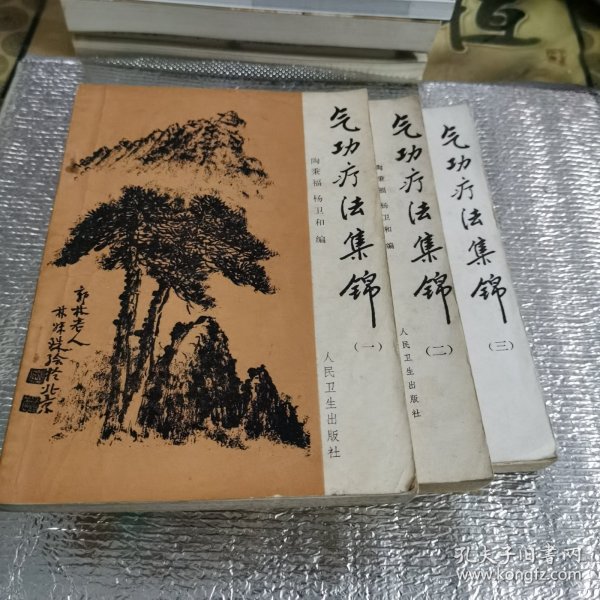 气功疗法集锦
（一）
陶秉福 杨卫和 编
人民卫生出版社
郭林老人
气功疗法集锦
（二）
陶秉福 杨卫和 编
人民卫生出版社
气功疗法集锦
（三）
孔夫子旧书网
www.kongfz.com